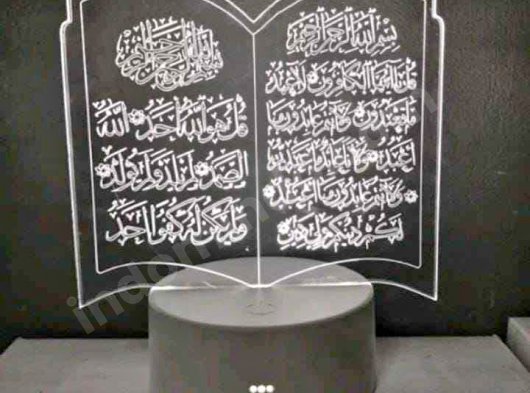 بسم الله الرحمن الرحيم
قل يا أيها الكافرون لا أعبد
ما تعبدون ولا أنتم عابدون ما
أعبد ولا أنا عابد ما عبدتم
ولا أنتم عابدون ما أعبد
لكم دينكم ولي دين
بسم الله الرحمن الرحيم
قل هو الله أحد الله
الصمد لم يلد ولم يولد
ولم يكن له كفوا أحد